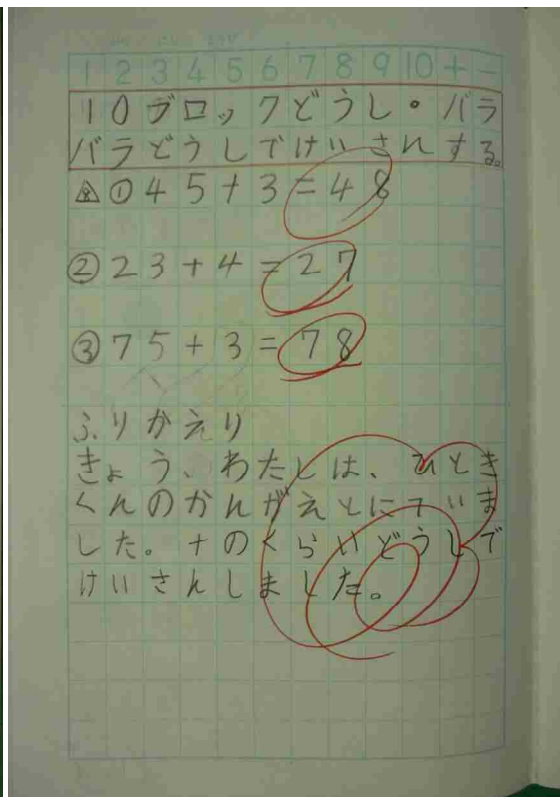 1 2 3 4 5 6 7 8 9 10 + -
10ブロックどうし・バラ
バラどうしでけいさんする。
①45+3=48
②23+4=27
③75+3=78
ふりかえり
きょう、わたしは、ひとき
くんのかんがえとにていま
した。十のくらいどうしで
けいさんしました。